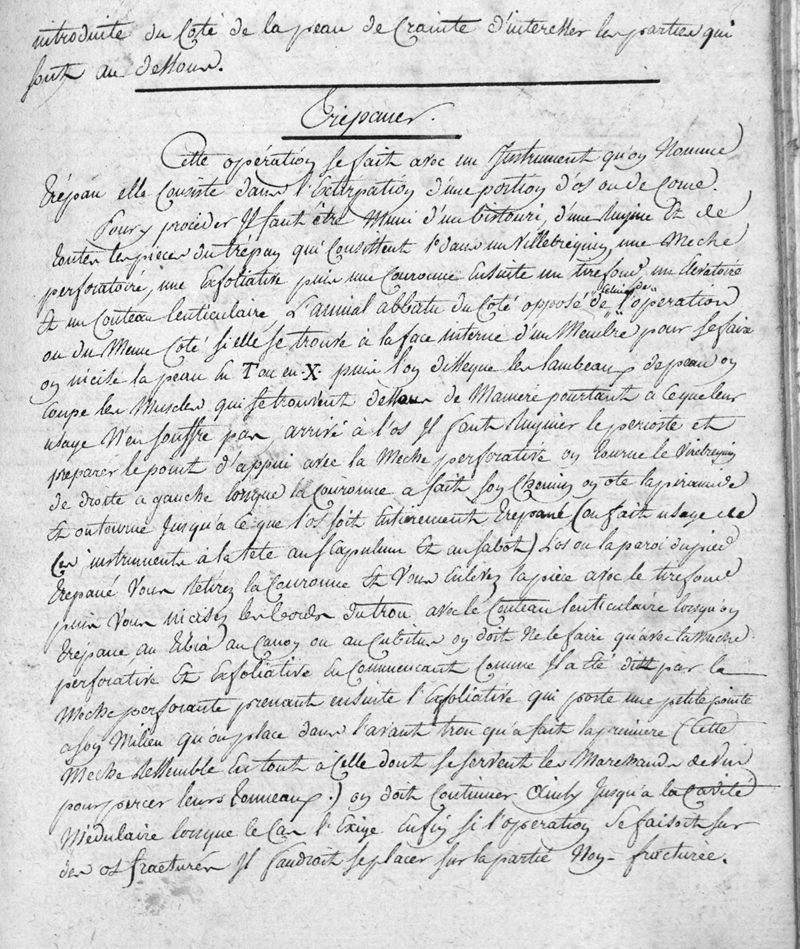 introduite du Coté de la peau de Crainte d'interesser les parties qui
sont au dessous.
Trépaner.
Cette opération se fait avec un Instrument qu'on Nomme
trépan elle Consiste dans l'Extirpation d'une portion d'os ou de Corne.
Pour y procéder Il faut être Muni d'un bistouri, d'une rugine Et de
toutes les pièces du trépan qui Consistent 1° dans un Villebrequin, une Meche
perforatoire, une Exfoliative puis une Couronne Ensuite un tirefond, un élévatoire
Et un Couteau lenticulaire. L'animal abbatu du Coté opposé de l'opération
ou du Meme Coté si elle se trouve à la face interne d'un Membre pour se faire
on incise la peau En T ou en X puis l'on disseque les lambeaux de peau on
Coupe les Muscles qui se trouvent dessous de Maniere pourtant à Ce que leur
usage N'en souffre pas, arrivé a l'os Il faut ruginer le perioste et
préparer le point d'appui avec la Meche perforative on tourne le Virebrequin
de droite a gauche lorsque la Couronne a fait son Chemin on ote la piramide
Et on tourne Jusqu'a Ce que l'os soit Entierement trépané (on fait usage de
Ces instruments à la tete au Scapulum Et au sabot) L'os ou la paroi du pied
trépané Vous retirez la Couronne Et Vous Enlevez la pièce avec le tirefond
puis Vous incisez les bords du trou avec le Couteau lenticulaire lorsqu'on
trépane au tibia au Canon ou au Cubitus on doit Ne le faire qu'avec la Meche
perforative Et Exfoliative En Commencant Comme Il a Eté dit par la
Meche perforante prenant ensuite l'Exfoliative qui porte une petite pointe
a son Milieu qu'on place dans l'avant trou qu'a fait la premiere (Cette
Meche ressemble En tout à Celle dont se servent les Marchands de Vin
pour percer leurs tonneaux.) on doit Continuer Ainsy Jusqu'a la Cavité
Médulaire lorsque le Cas l'Exige Enfin si l'operation se faisoit sur
des os fracturés Il faudroit se placer sur la partie Non-fracturée.